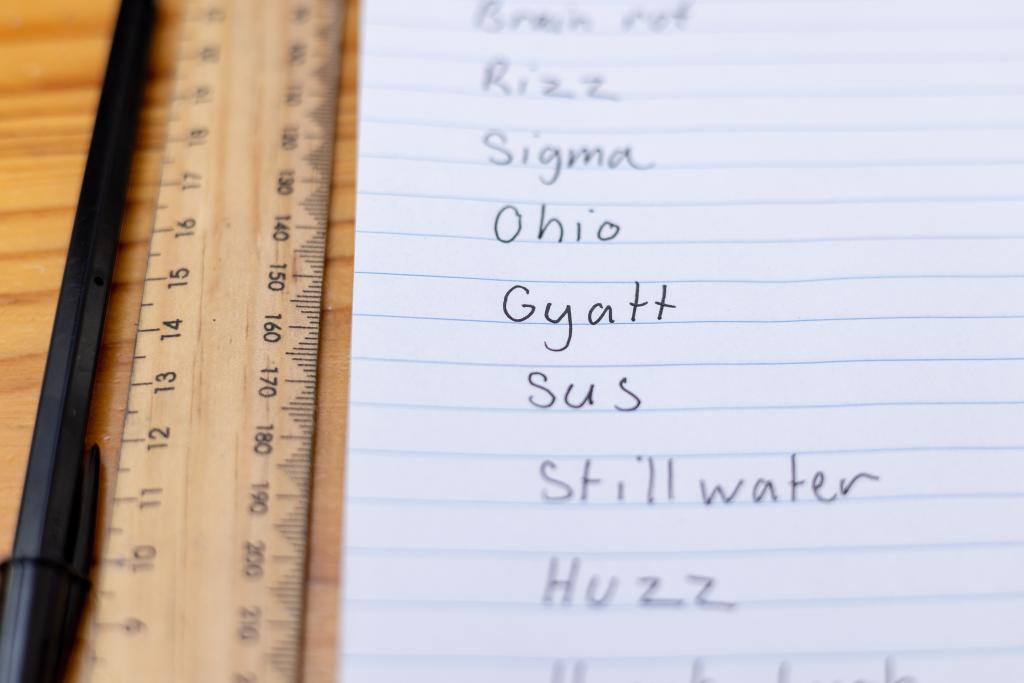 Brain rot
Rizz
Sigma
Ohio
Gyatt
Sus
Still water
Huzz
19
18
17
16
15
14
13
12
11
10
9
120
130
140
150
160
170
180
190
200
210